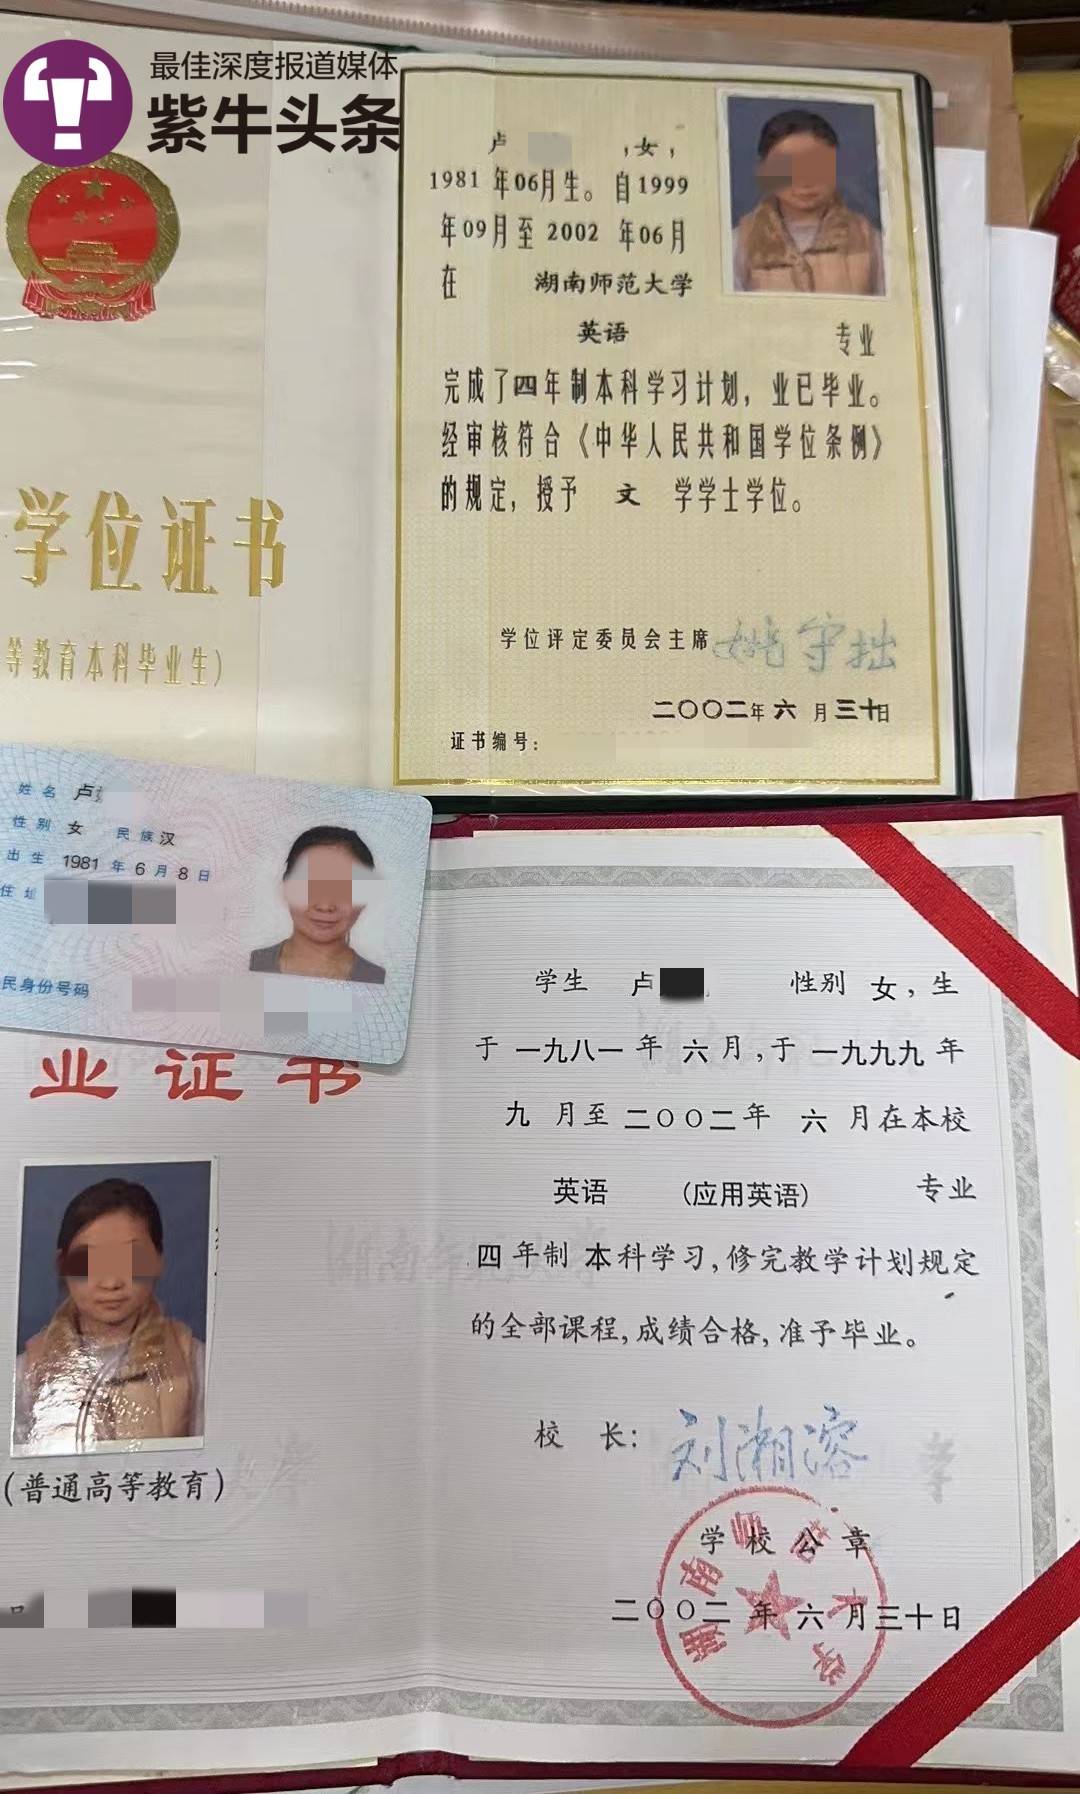 最佳深度报道媒体
紫牛头条
卢 ,女,
1981 年06月生。自1999
年09月至 2002 年06月
在 湖南师范大学
英语 专业
完成了四年制本科学习计划,业已毕业。
经审核符合《中华人民共和国学位条例》
的规定,授予 文 学学士学位。
学位评定委员会主席 姚守拙
二〇〇二年 六 月三十日
证书编号:
学位证书
等教育本科毕业生)
姓名 卢
性别 女 民族 汉
出生 1981 年 6 月 8 日
住址
民身份号码
业证书
(普通高等教育)
学生 卢 性别 女,生
于 一九八一 年 六 月,于 一九九九 年
九 月至 二〇〇二 年 六 月在本校
英语 (应用英语) 专业
四 年制 本科学习,修完教学计划规定
的全部课程,成绩合格,准予毕业。
校 长: 刘湘溶
学校公章
湖南师范大学
二〇〇二 年 六 月三十日